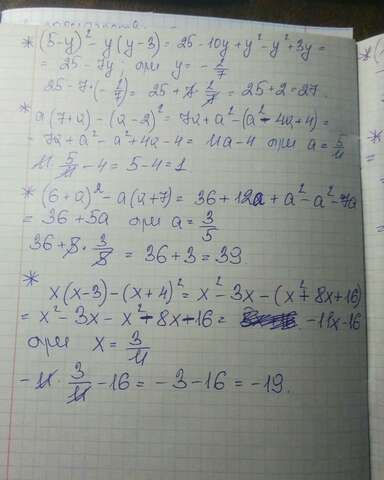 * (5-y)² - y(y-3) = 25 - 10y + y² - y² + 3y =
= 25 - 7y; при y = -2/7
25 - 7·(-2/7) = 25 + 7·2/7 = 25 + 2 = 27.
* a(7+a) - (a-2)² = 7a + a² - (a² - 4a + 4) =
= 7a + a² - a² + 4a - 4 = 11a - 4 при a = 5/11
11·5/11 - 4 = 5 - 4 = 1
* (6+a)² - a(a+7) = 36 + 12a + a² - a² - 7a
= 36 + 5a при a = 3/5
36 + 5·3/5 = 36 + 3 = 39.
*
x(x-3) - (x+4)² = x² - 3x - (x² + 8x + 16)
= x² - 3x - x² - 8x - 16 = -11x - 16
при x = 3/11
-11·3/11 - 16 = -3 - 16 = -19.